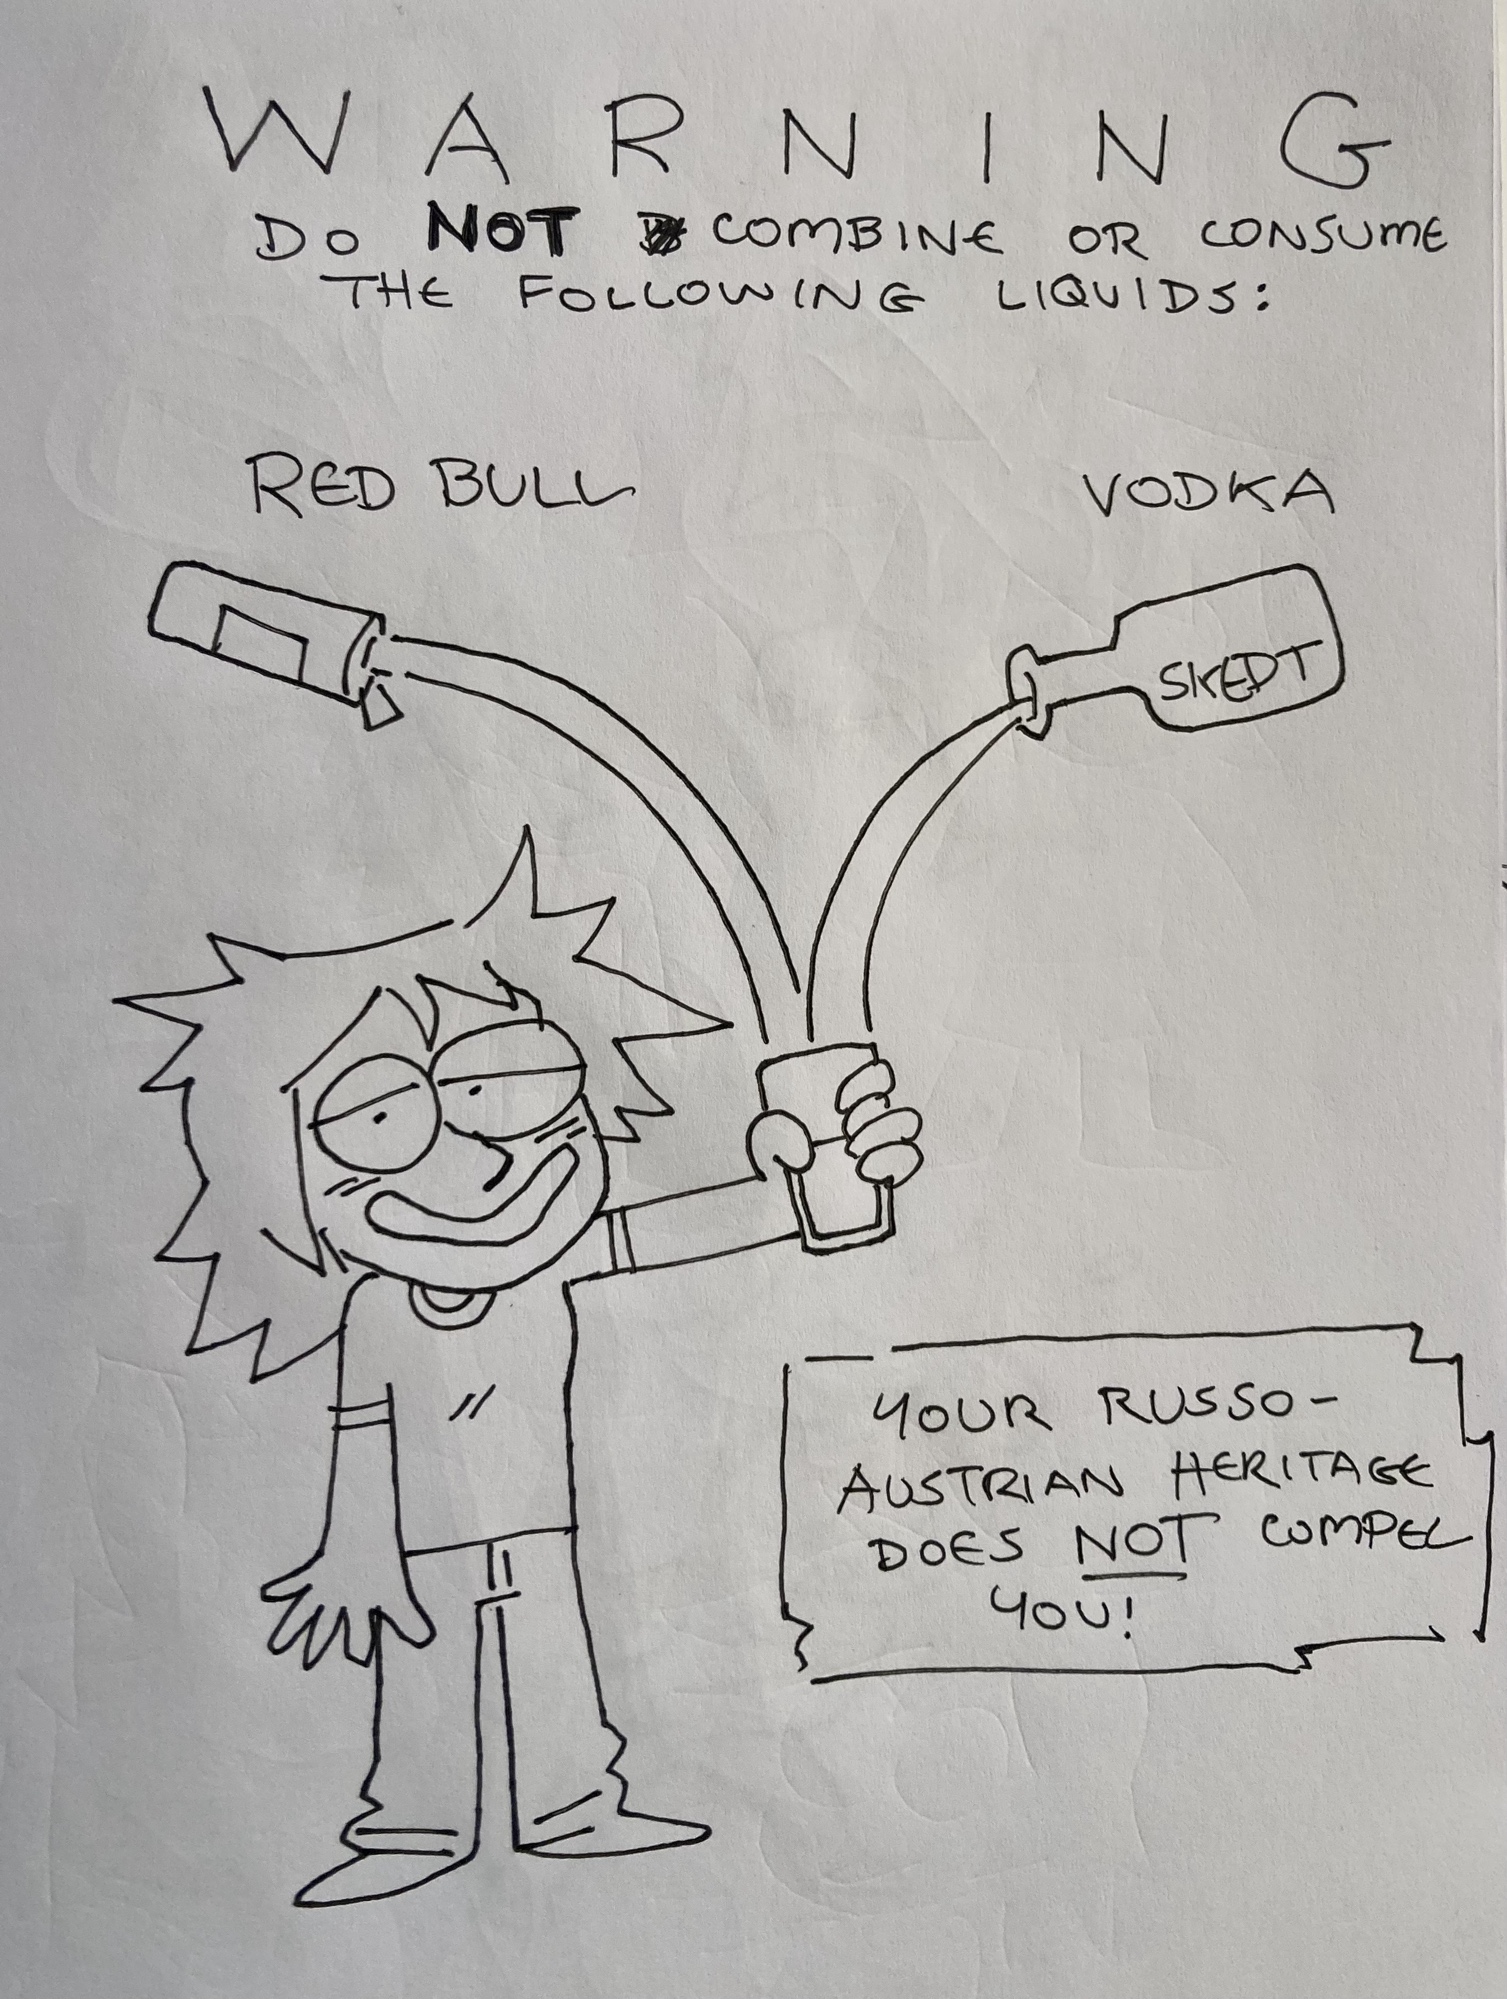 WARNING
DO NOT COMBINE OR CONSUME
THE FOLLOWING LIQUIDS:
RED BULL
VODKA
SKEDT
YOUR RUSSO-
AUSTRIAN HERITAGE
DOES NOT COMPEL
YOU!